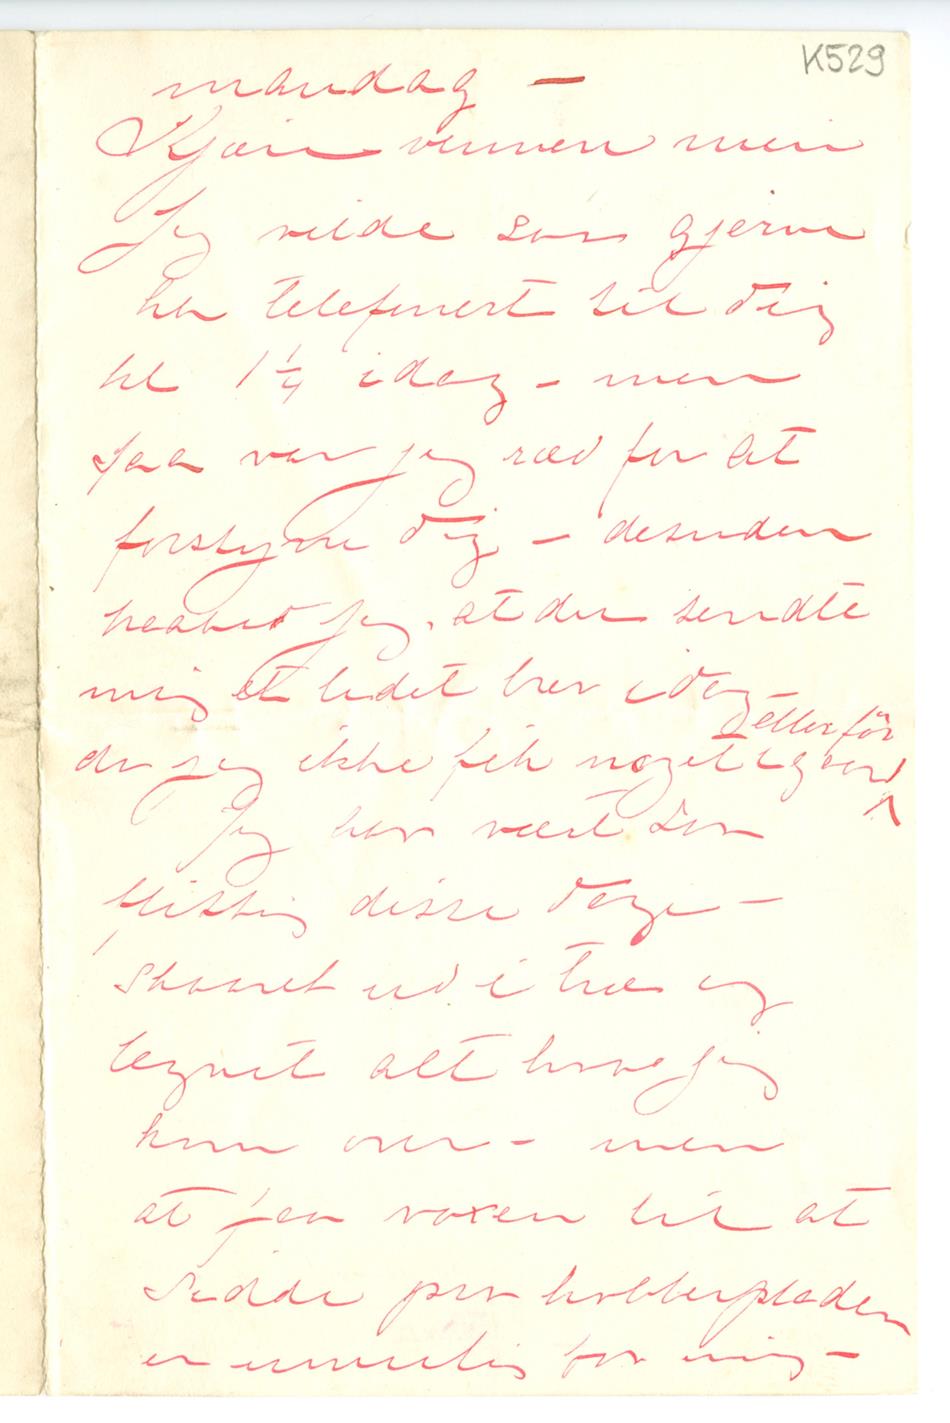 K529
mandag –
Kjære vennen min
Jeg vilde saa gjerne
ha telefonert til dig
kl 1 1/4 idag – men
saa var jeg ræd for at
forstyrre dig – desuden
haabed jeg, at du sendte
mig et lidet brev idag –
da jeg ikke fik noget igaar eller før
Jeg har vært saa
flittig disse dage –
skaaret ud i træ og
tegnet alt hvad jeg
kom over – men
at faa voxen til at
sidde paa kobberpladen
er umulig for mig –